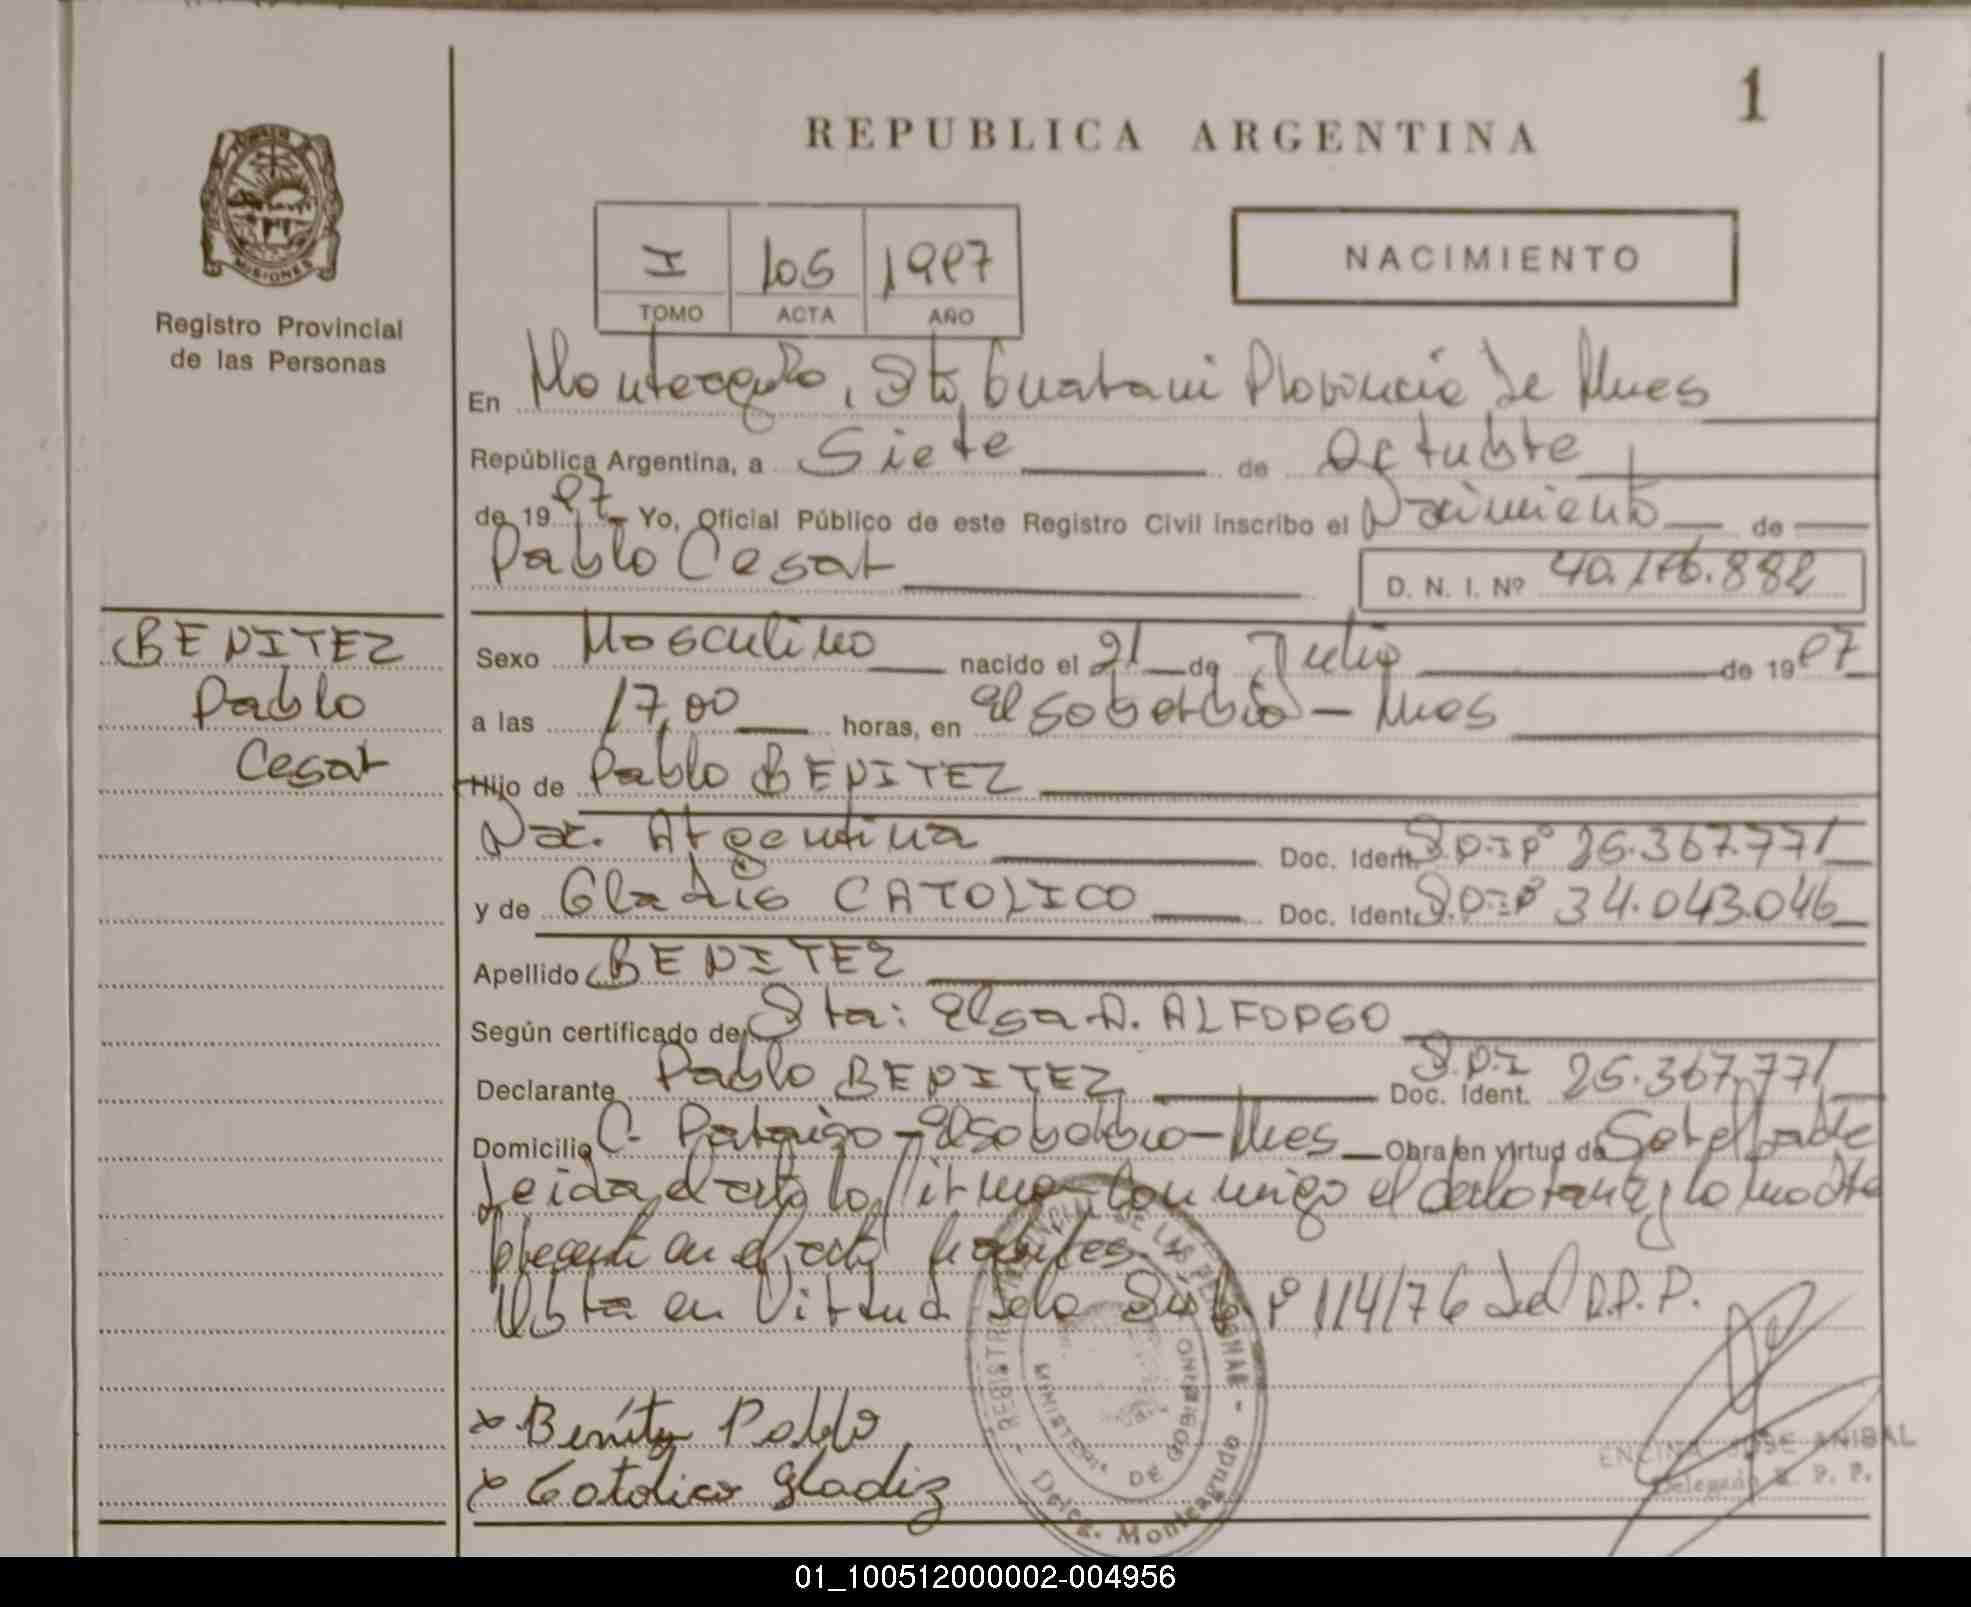 1
REPUBLICA ARGENTINA
MISIONES
Registro Provincial
de las Personas
I 105 1997
TOMO ACTA AÑO
NACIMIENTO
En Monteagudo, Dto Guarani Provincia de Mnes
República Argentina, a Siete de Octubre
de 1997 Yo, Oficial Público de este Registro Civil inscribo el Nacimiento de
Pablo Cesar D. N. I. Nº
BENITEZ
Pablo
Cesar
Sexo Masculino nacido el 21 de Julio de 1997
a las 17,00 horas, en El Soberbio - Mnes
Hijo de Pablo BENITEZ
Nac. Argentina Doc. Ident. D.N.I Nº 25.367.771
y de Gladis CATOLICO Doc. Ident. D.N.I Nº 34.043.046
Apellido BENITEZ
Según certificado de Dra: Elsa A. ALFONSO
Declarante Pablo BENITEZ D.N.I Doc. Ident. 25.367.771
Domicilio C. Paraiso - El Soberbio - Mnes Obra en virtud de Ser el padre
Leida el acta la firma conmigo el declarante y la madre
presente en el acto
Obra en Virtud de la Nº 114/76 del R.P.P.
x Benítez Pablo
x Catolico Gladiz
REGISTRO PROVINCIAL DE LAS PERSONAS
MINISTERIO DE GOBIERNO
Deleg. Monteagudo
ENCINA JOSE ANIBAL
Delegado R. P. P.
01_100512000002-004956